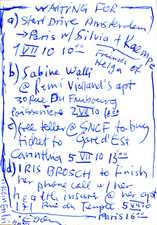 WAITING FOR
a) Start Drive Amsterdam
→ Paris w/ Silvia + Kaempe
1 VII 10 10⁰⁰ Friends of Helga
b) Sabine Walli
@ Remi Violland's apt
30 Rue Du Faubourg
Poissonniere 2 VII 10
c) free teller @ SNCF to buy
ticket to Gare d'Est
Carinthia 5 VII 10 15⁰⁰
d) IRIS BROSCH to finish
her phone call w/ her
health insurer @ her apt
Rue du Temple 5 VII 10
Paris 16⁰⁰